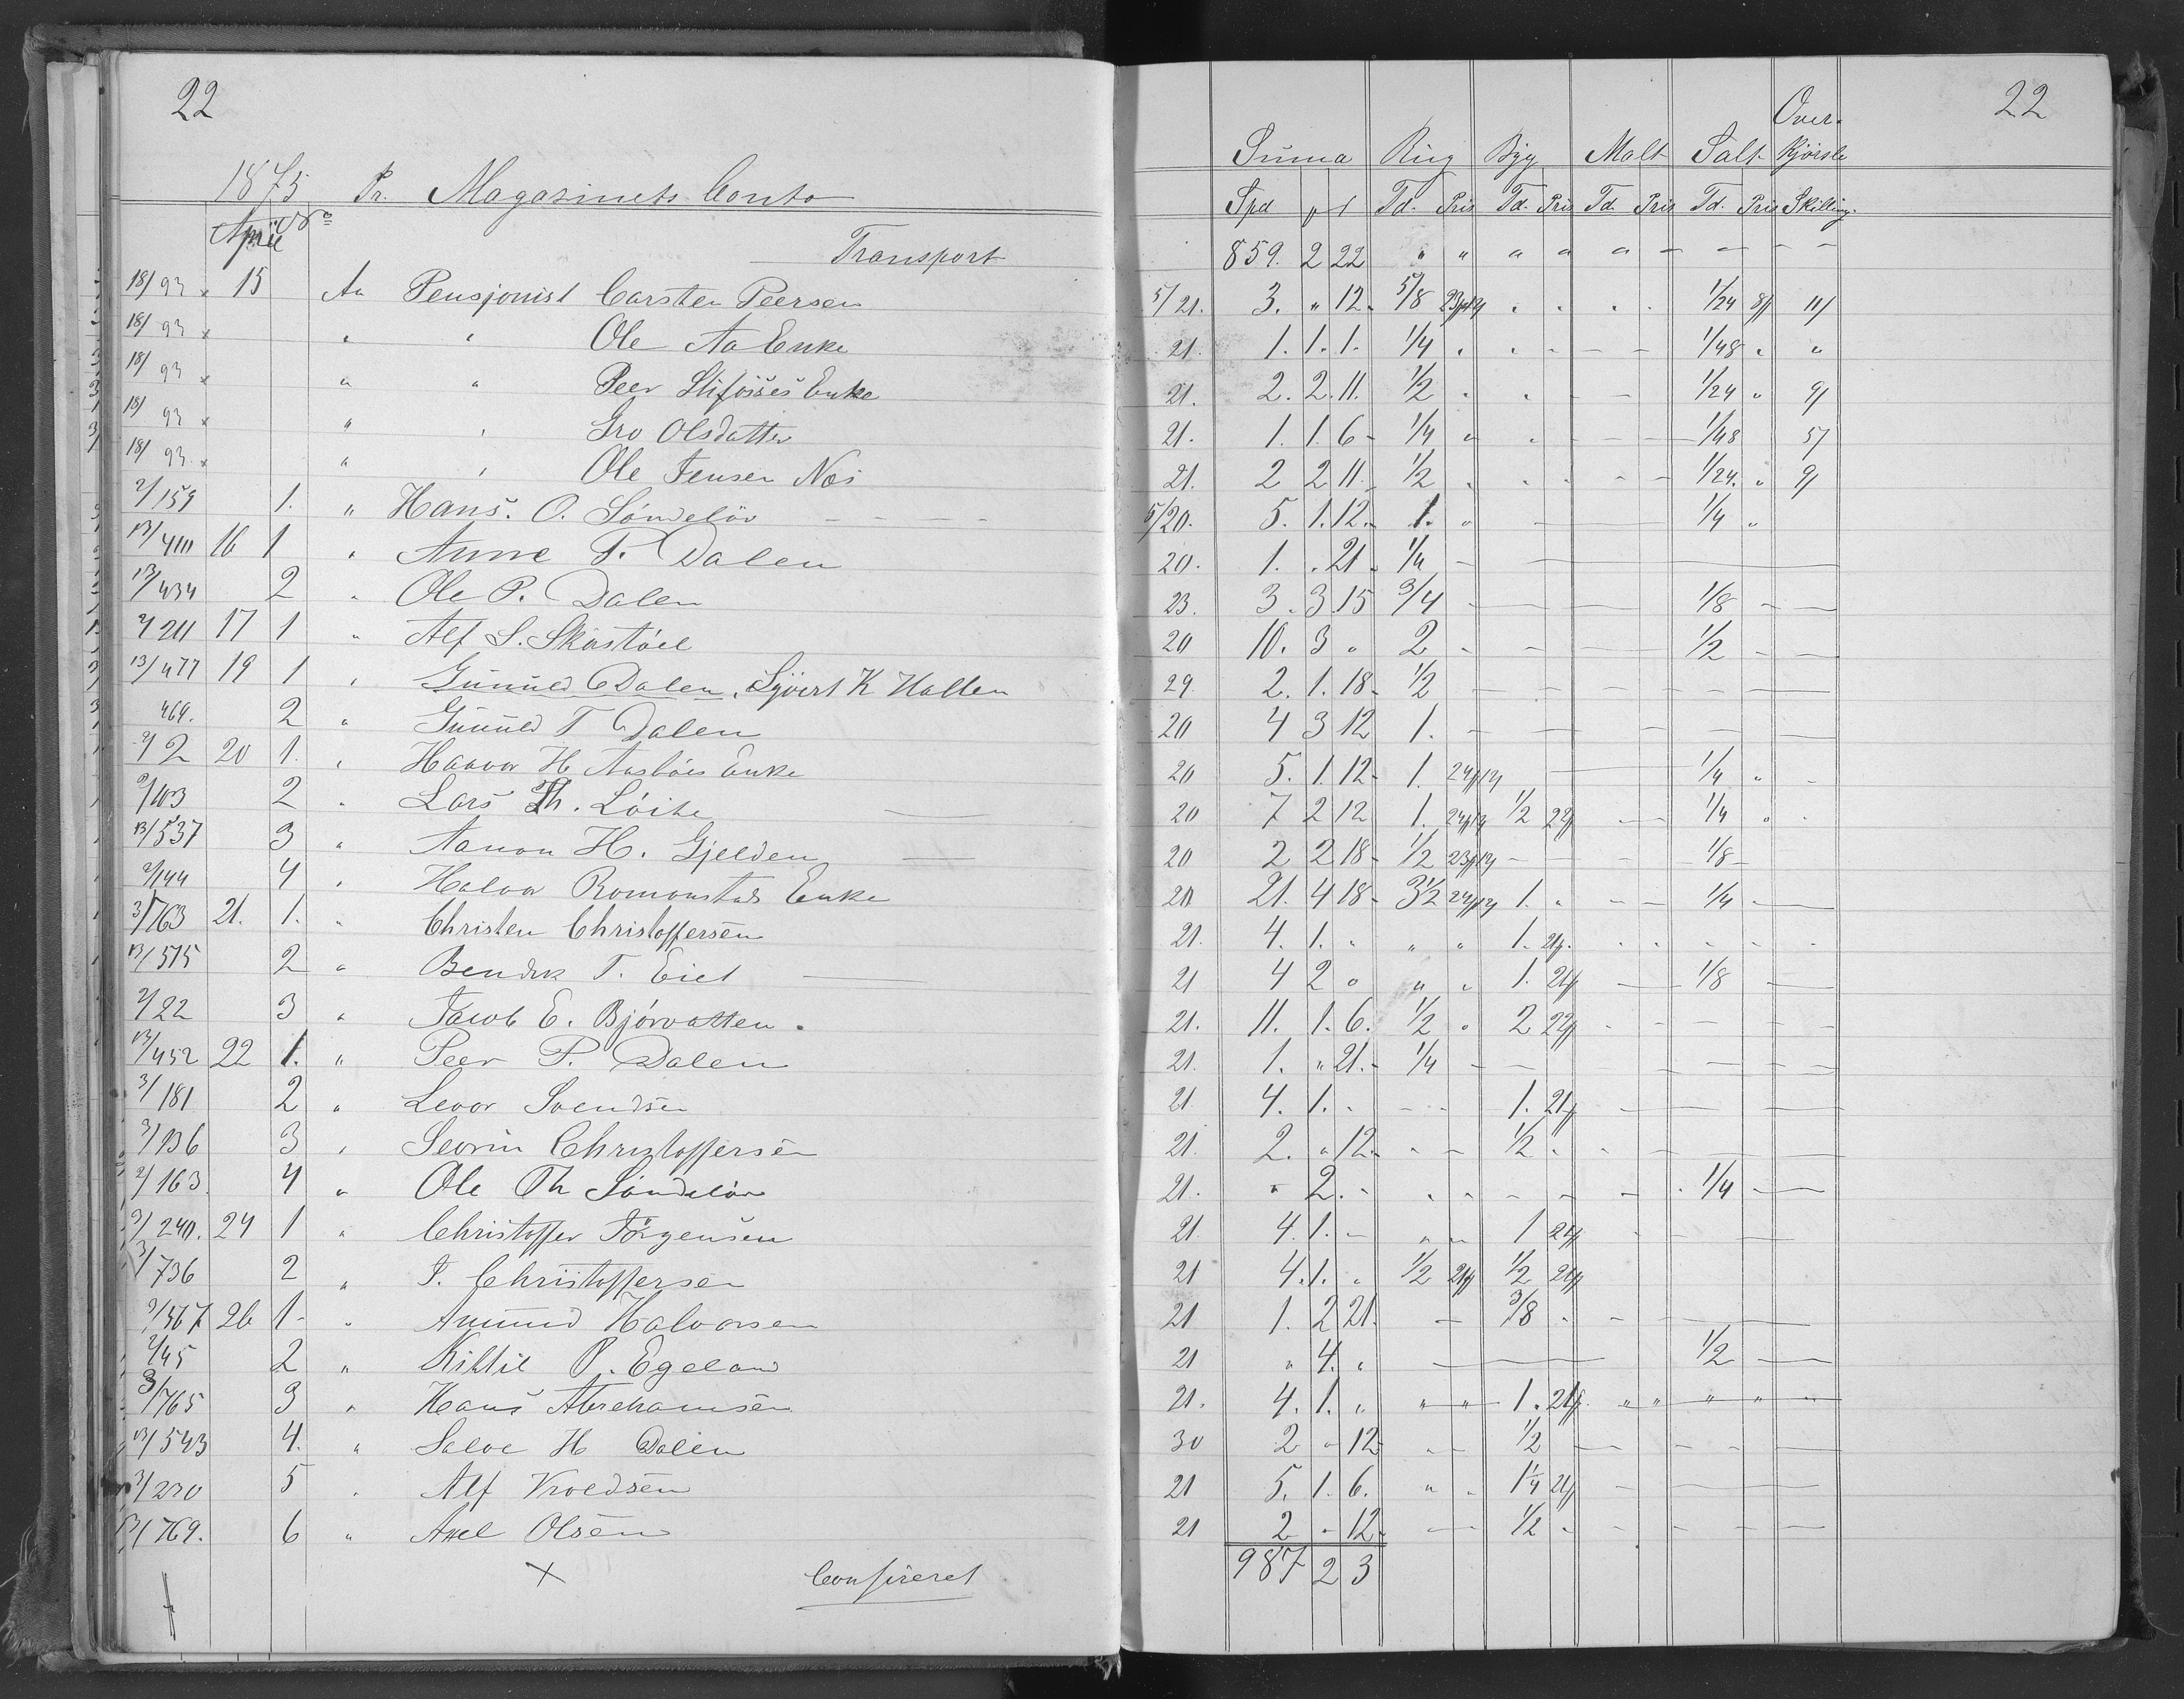 22
1875 Pr. Magasinets Conto
April No
Transport
18/93 x 15 An Pensjonist Carsten Peersen
18/93 x " " Ole Aa Enke
18/93 x " " Peer Stifosses Enke
18/93 x " " Gro Olsdatter
18/93 x " " Ole Jensen Næs
2/159 1. " Hans. O. Söndelöv
13/410 16 1 " Anne P. Dalen
13/434 2 " Ole P. Dalen
2/211 17 1 " Alf S. Skaståel
13/477 19 1 " Gunuld Dalen, Sjövert K Hallen
469. 2 " Gunuld T Dalen
2/2 20 1. " Haavor H Aasböes Enke
2/103 2 " Lars Th. Löite
13/537 3 " Aanon H. Gjelden
2/144 4 " Halvor Romonstads Enke
3/763 21. 1. " Christen Christoffersen
13/515 2 " Bendix T. Eiet
2/22 3 " Jacob E. Bjórvatten.
13/452 22 1. " Peer P. Dalen
3/181 2 " Levor Svendsen
3/136 3 " Severin Christoffersen
2/163. 4 " Ole Th Söndelöv
3/240. 24 1 " Christoffer Jörgensen
3/736 2 " T. Christoffersen
3/367 26 1 " Amund Halvorsen
2/45 2 " Kittil P. Egeland
3/765 3 " Hans Abrehamsen
13/543 4. " Salve H Dalen
3/230 5 " Alf Kroedsen
13/769. 6 " " Axel Olsen
x Confereret
22
Over-
Suma Rug Byg Malt Salt Kjörsle
Spd Td. Pris Td. Pris Td. Pris Td. Pris Skilling.
859. 2 22 " " " " " - - - -
5/21. 3. " 12 5/8 " " " " 1/24 11/
21. 1. 1. 1. 1/4 " " - - - 1/48 " "
21. 2. 2. 11. 1/2 " " - - 1/24 " 9/
21. 1. 1. 6 1/4 " " - - - 1/48 5/
21. 2 2 11 1/2 " " - - - 1/24. " 9/
5/20. 5. 1. 12. 1. " - 1/4 "
20. 1. " 21 1/4 -
23. 3. 3 15 3/4 - - - - 1/8 - -
20 10. 3 " 2 - - - 1/2 - -
29. 2. 1. 18 1/2 - - - - - - -
20 4 3 12 1. - - - - - -
20 5. 1. 12 1. - 1/4 " -
20 7 2 12 1. 1/2 - - 1/4 " "
20 2 2 18 1/2 - - - 1/8 -
20 21. 4 18 3 1/2 1. " - - 1/4 - -
21. 4. 1. " " " 1. " " " " "
21 4 2 " " " 1. - - 1/8 - -
21. 11. 1. 6. 1/2 " 2 - - - - -
21. 1. " 21. 1/4 - - - - -
21 4. 1. " - - 1. - - - - -
21. 2. " 12 " - 1/2 " - - - -
21. " 2. " " " - - - 1/4 - -
21 4. 1. - " " 1 - - -
21 4. 1. " 1/2 1/2
21 1. 2 21. - 3/8 " - -
21 " 4. " - 1/2 -
21. 4. 1. " " " 1. " " " " "
30 2 " 12 - - 1/2 - - - - -
21 5. 1. 6. " " 1 1/4 - -
21 2 " 12 - - 1/2 - - - - - -
987 2 3